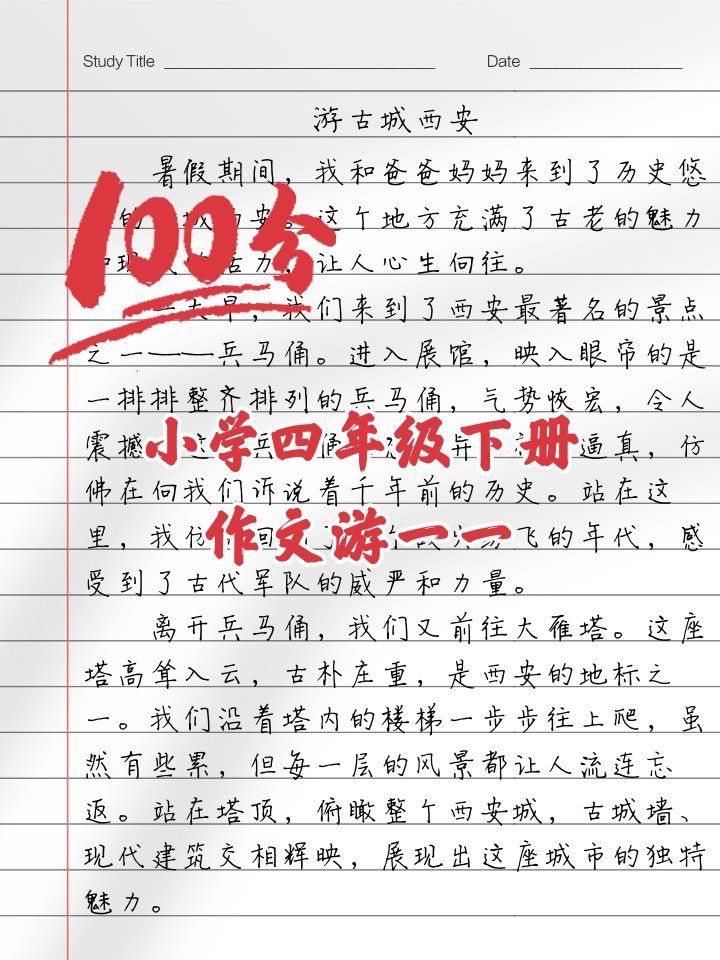 Study Title
Date
游古城西安
暑假期间，我和爸爸妈妈来到了历史悠
100分
的 城西安。这个地方充满了古老的魅力
活力，让人心生向往。
一大早，我们来到了西安最著名的景点
之一——兵马俑。进入展馆，映入眼帘的是
一排排整齐排列的兵马俑，气势恢宏，令人
小学四年级下册
震撼 这 兵 俑 异 逼真，仿
佛在向我们诉说着千年前的历史。站在这
作文游一一
里，我仿 回 了 飞的年代，感
受到了古代军队的威严和力量。
离开兵马俑，我们又前往大雁塔。这座
塔高耸入云，古朴庄重，是西安的地标之
一。我们沿着塔内的楼梯一步步往上爬，虽
然有些累，但每一层的风景都让人流连忘
返。站在塔顶，俯瞰整个西安城，古城墙、
现代建筑交相辉映，展现出这座城市的独特
魅力。